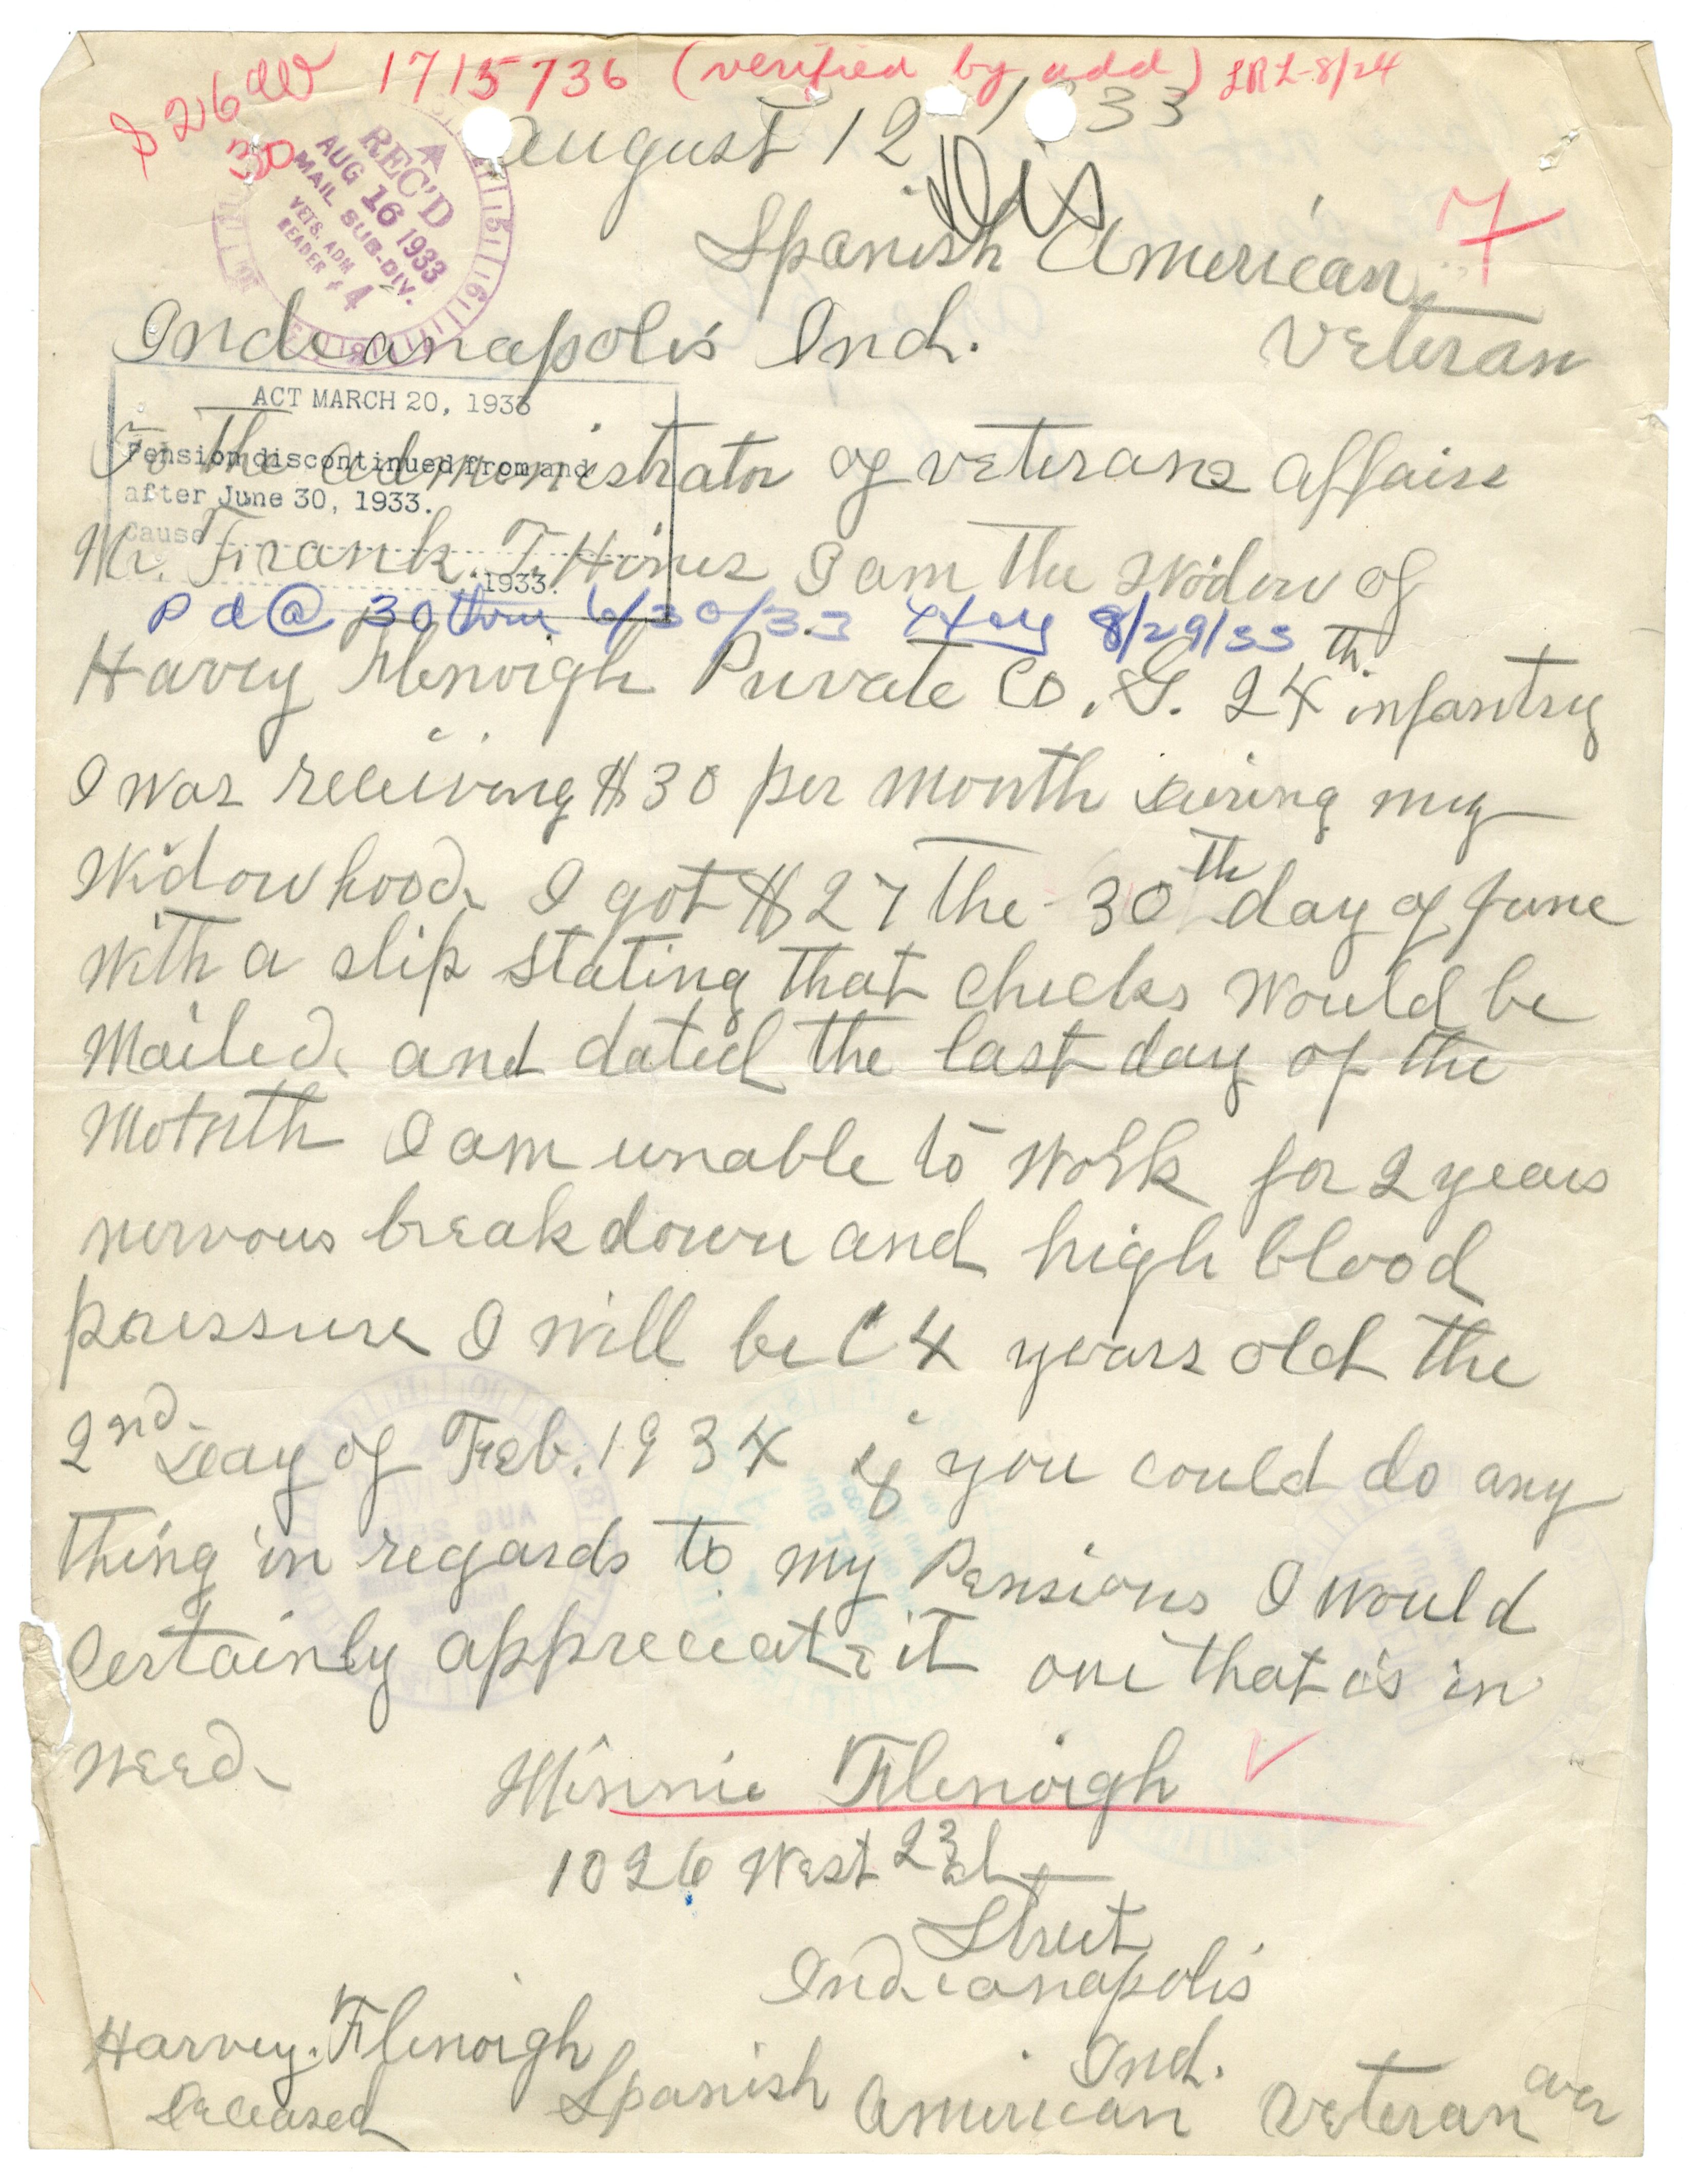 1715736 (verified by add) LRL 8/24
30
August 12, 1933
REC'D
AUG 16 1933
MAIL SUB-DIV.
VETS. ADM
READER #4
Dis
Spanish American
Veteran
Indeanapolis Ind.
ACT MARCH 20, 1933
Pension discontinued from and
after June 30, 1933.
Cause
1933.
To The administrator of veterans affairs
Mr. Frank. T. Hines I am the Widow of
Pd @ 30 thru 6/30/33 8/29/33
Harvey Flenoigh Private Co. G. 24th infantry
I was receiving $30 per month during my
Widowhood. I got $27 the 30th day of June
with a slip stating that checks would be
mailed. and dated the last day of the
Motnth I am unable to work for 2 years
nervous breakdown and high blood
pressure I will be 64 years old the
2nd Day of Feb. 1934 if you could do any
thing in regards to my Pensions I would
Certainly appreciate it one that is in
need.
Minnie Flenoigh
1026 West 23d
Street
Indianapolis
Ind.
Harvey. Flenoigh
Deceased Spanish American Veteran
over